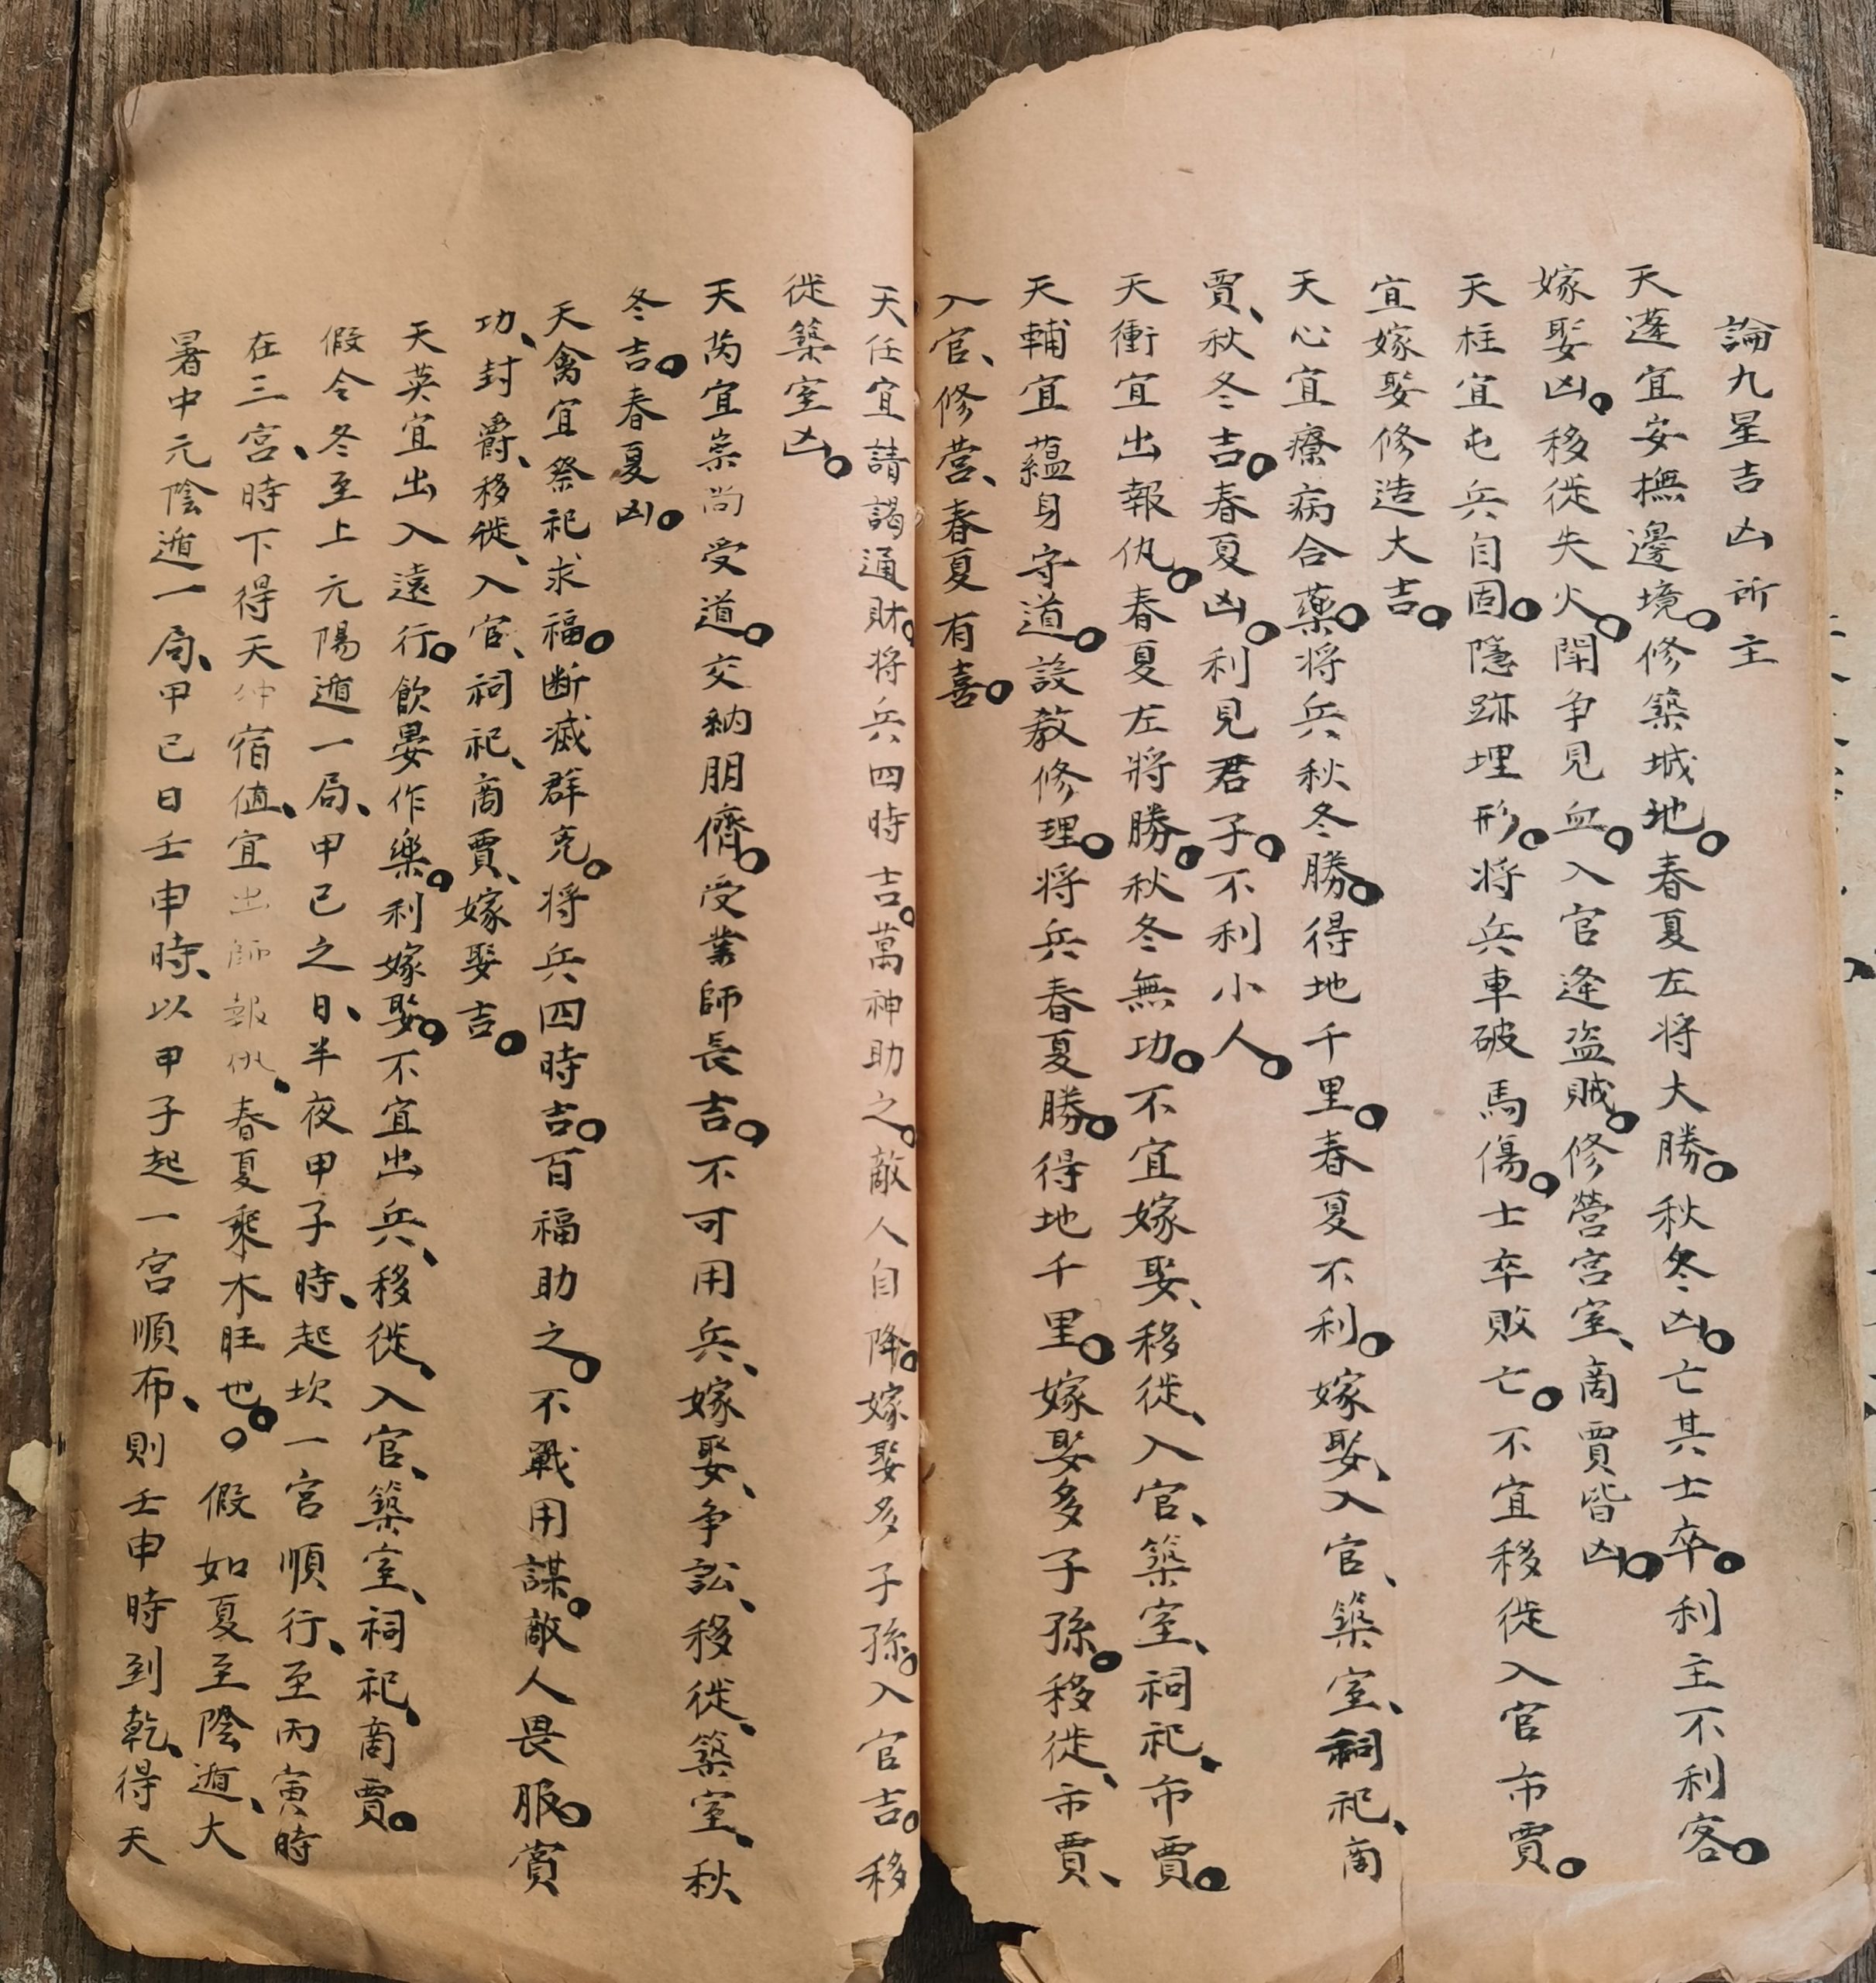 論九星吉凶所主
天蓬宜安撫邊境。修築城地。春夏左将大勝。秋冬凶。亡其士卒。利主不利客。
嫁娶凶。移徙失火。鬪争見血。入官逢盗賊。修營宫室、商賈皆凶。
天柱宜屯兵自固。隱跡埋形。将兵車破馬傷。士卒敗亡。不宜移徙入官市賈。
宜嫁娶修造大吉。
天心宜療病合藥。将兵秋冬勝。得地千里。春夏不利。嫁娶、入官、築室、祠祀、商
賈、秋冬吉。春夏凶。利見君子。不利小人。
天衝宜出報仇。春夏左將勝。秋冬無功。不宜嫁娶、移徙、入官、築室、祠祀、市賈。
天輔宜蘊身守道。設教修理。将兵春夏勝。得地千里。嫁娶多子孫。移徙、市賈、
入官、修营、春夏有喜。
天任宜請謁通財。将兵四時吉。萬神助之。敵人自降。嫁娶多子孫。入官吉。移
徙築室凶。
天芮宜崇尚受道。交納朋儕。受業師長吉。不可用兵、嫁娶、争訟、移徙、築室、秋、
冬吉。春夏凶。
天禽宜祭祀求福。断滅群克。将兵四時吉。百福助之。不戰用謀。敵人畏服。賞
功、封爵、移徙、入官、祠祀、商賈、嫁娶吉。
天英宜出入遠行。飲宴作樂。利嫁娶。不宜出兵、移徙、入官、築室、祠祀、商賈。
假令冬至上元陽遁一局、甲己之日、半夜甲子時、起坎一宫順行、至丙寅時
在三宫、時下得天冲宿值、宜出師報仇、春夏乘木旺也。。假如夏至陰遁、大
暑中元陰遁一局、甲己日壬申時、以甲子起一宫順布、則壬申時到乾、得天